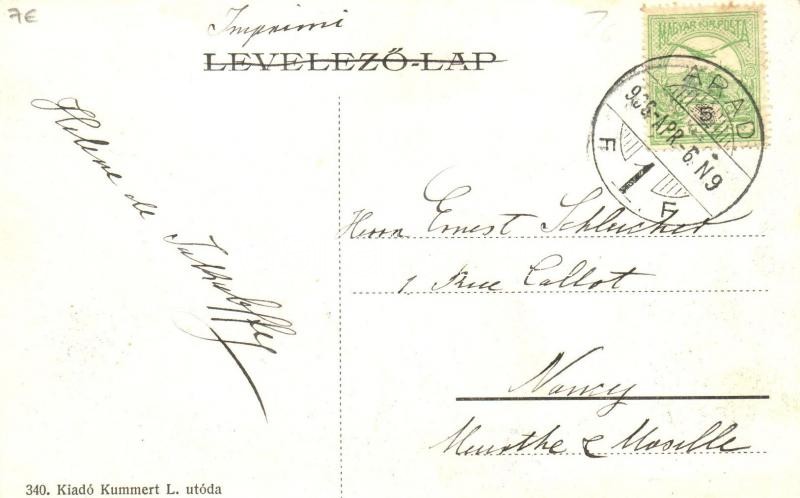 7E
Imprimé
LEVELEZŐ-LAP
MAGYAR KIR. POSTA
ARAD
905 APR.-6. N9
F 1 F
5
Helene de
Herrn Ernest Schleicher
1 Rue Callot
Nancy
Meurthe & Moselle
340. Kiadó Kummert L. utóda